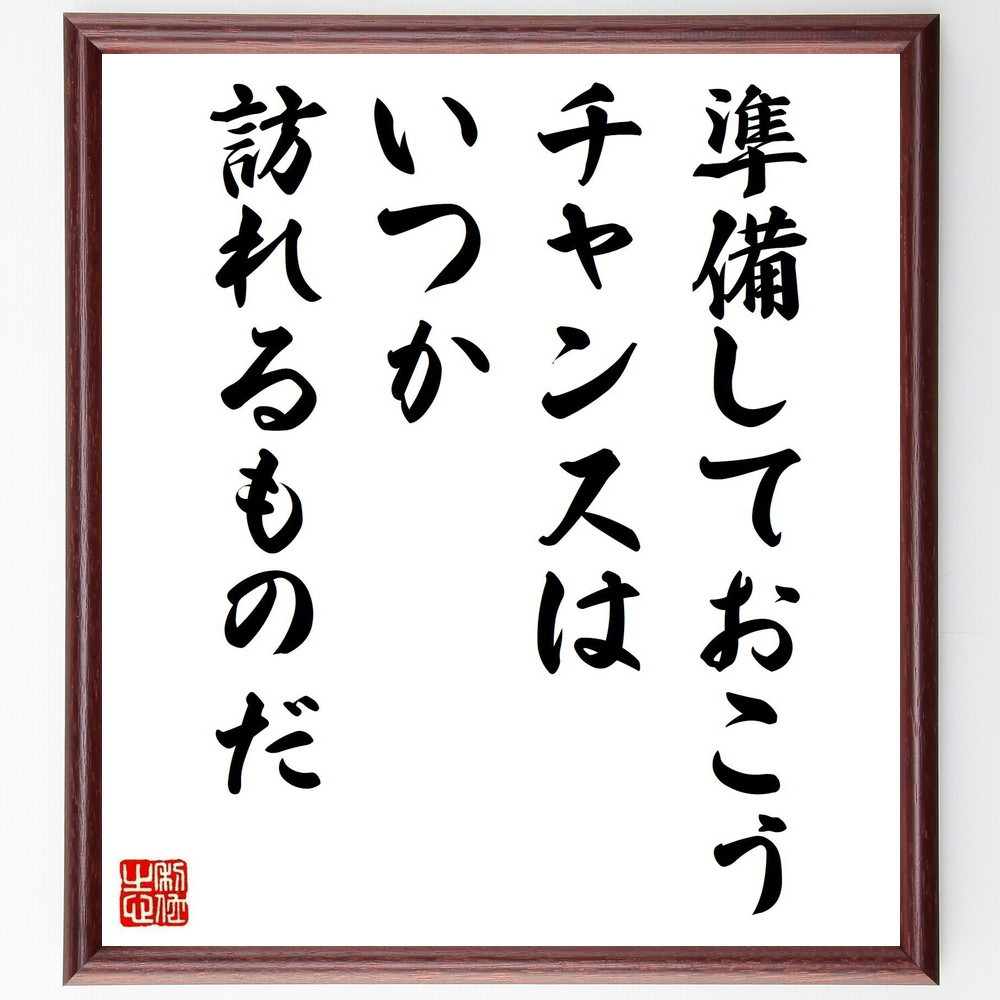 準備しておこう
チャンスは
いつか
訪れるものだ